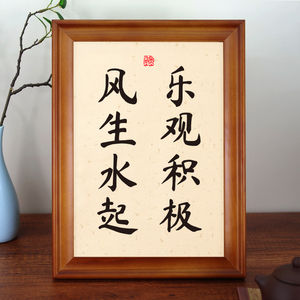 乐观积极
风生水起